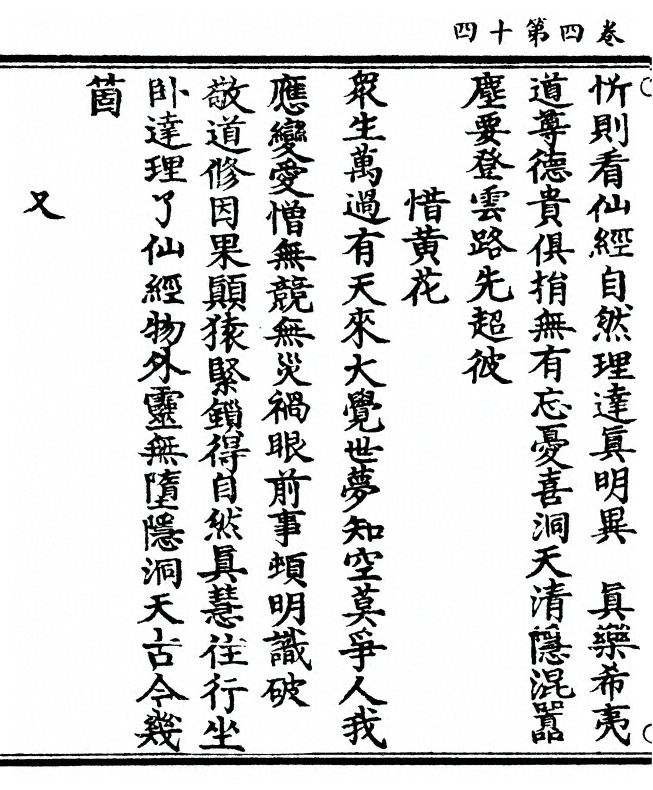 卷四第十四
忻則看仙經自然理達眞明異　眞藥希夷
道尊德貴俱捎無有忘憂喜洞天清隱混嚣
塵要登雲路先超彼
惜黄花
眾生萬過有天來大覺世夢知空莫爭人我
應變愛憎無競無災禍眼前事頓明識破
敬道修因果顚猿緊鎖得自然眞慧住行坐
卧達理了仙經物外靈無墮隱洞天古今幾
箇
又